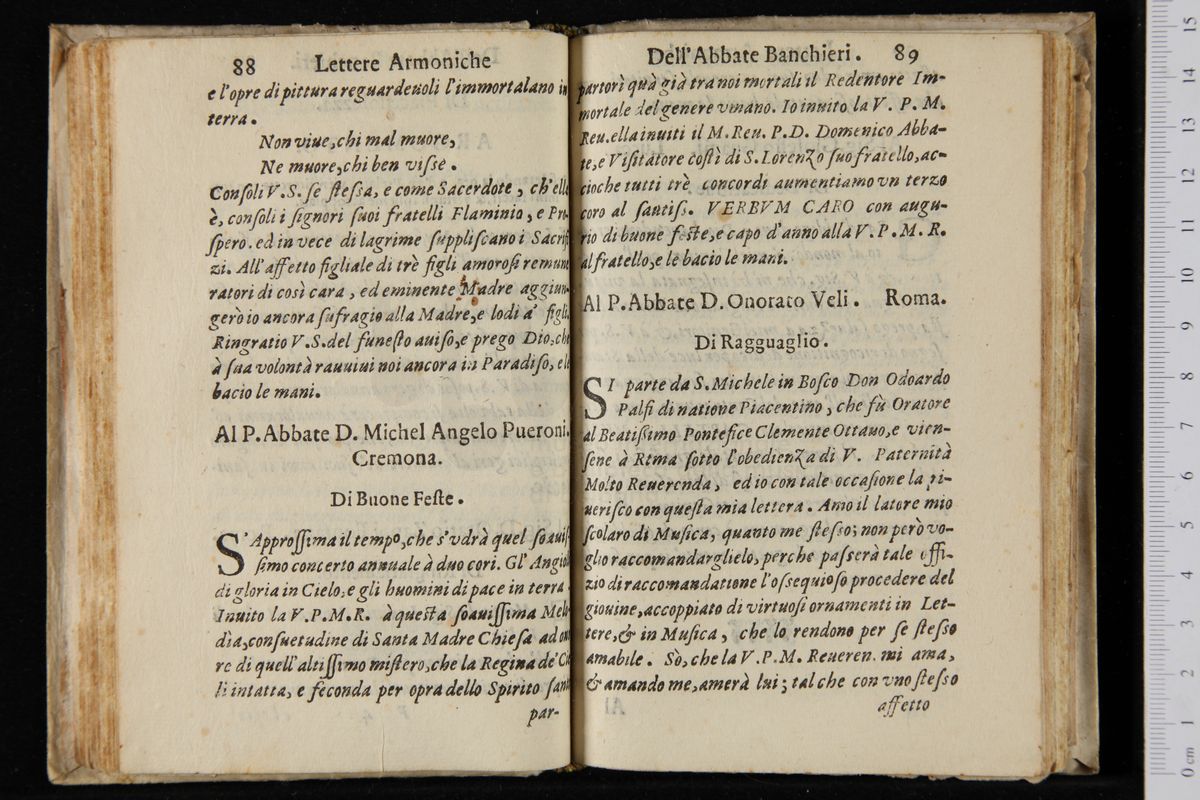 88 Lettere Armoniche
e l'opre di pittura reguardeuoli l'immortalano in
terra.
Non viue, chi mal muore,
Ne muore, chi ben visse.
Consoli V.S. se stessa, e come Sacerdote, ch'ella
è, consoli i signori suoi fratelli Flaminio, e Pro-
spero. ed in vece di lagrime suppliscano i Sacrifi
zi. All'affetto figliale di trè figli amorosi remune
ratori di così cara, ed eminente Madre aggiun-
gerò io ancora sufragio alla Madre, e lodi a' figli.
Ringratio V.S. del funesto auiso, e prego Dio, che
à sua volontà rauuiui noi ancora in Paradiso, e le
bacio le mani.
Al P. Abbate D. Michel Angelo Pueroni.
Cremona.
Di Buone Feste.
S'Approssima il tempo, che s'vdrà quel soauis-
simo concerto annuale à duo cori. Gl' Angioli
di gloria in Cielo, e gli huomini di pace in terra.
Inuito la V.P.M.R. à questa soauissima Melo
dìa, consuetudine di Santa Madre Chiesa ad ono
re di quell'altissimo mistero, che la Regina de' Cie
li intatta, e feconda per opra dello Spirito santo
par-
Dell'Abbate Banchieri. 89
partorì quà già tra noi mortali il Redentore Im-
mortale del genere vmano. Io inuito la V. P. M.
Reu. ella inuiti il M. Reu. P.D. Domenico Abba-
te, e Visitatore costì di S. Lorenzo suo fratello, ac-
cioche tutti trè concordi aumentiamo vn terzo
coro al santis. VERBVM CARO con augu-
rio di buone feste, e capo d'anno alla V. P. M. R.
al fratello, e le bacio le mani.
Al P. Abbate D. Onorato Veli. Roma.
Di Ragguaglio.
SI parte da S. Michele in Bosco Don Odoardo
Palfi di natione Piacentino, che fù Oratore
al Beatissimo Pontefice Clemente Ottauo, e vien-
sene à Rtma sotto l'obedienza di V. Paternità
Molto Reuerenda, ed io con tale occasione la ri-
uerisco con questa mia lettera. Amo il latore mio
scolaro di Musica, quanto me stesso; non però vo-
glio raccomandarglielo, perche passerà tale offi-
zio di raccomandatione l'ossequioso procedere del
giouine, accoppiato di virtuosi ornamenti in Let-
tere, & in Musica, che lo rendono per se stesso
amabile. Sò, che la V.P.M. Reueren. mi ama,
& amando me, amerà lui; tal che con vno stesso
affetto
0 cm 1 2 3 4 5 6 7 8 9 10 11 12 13 14 15